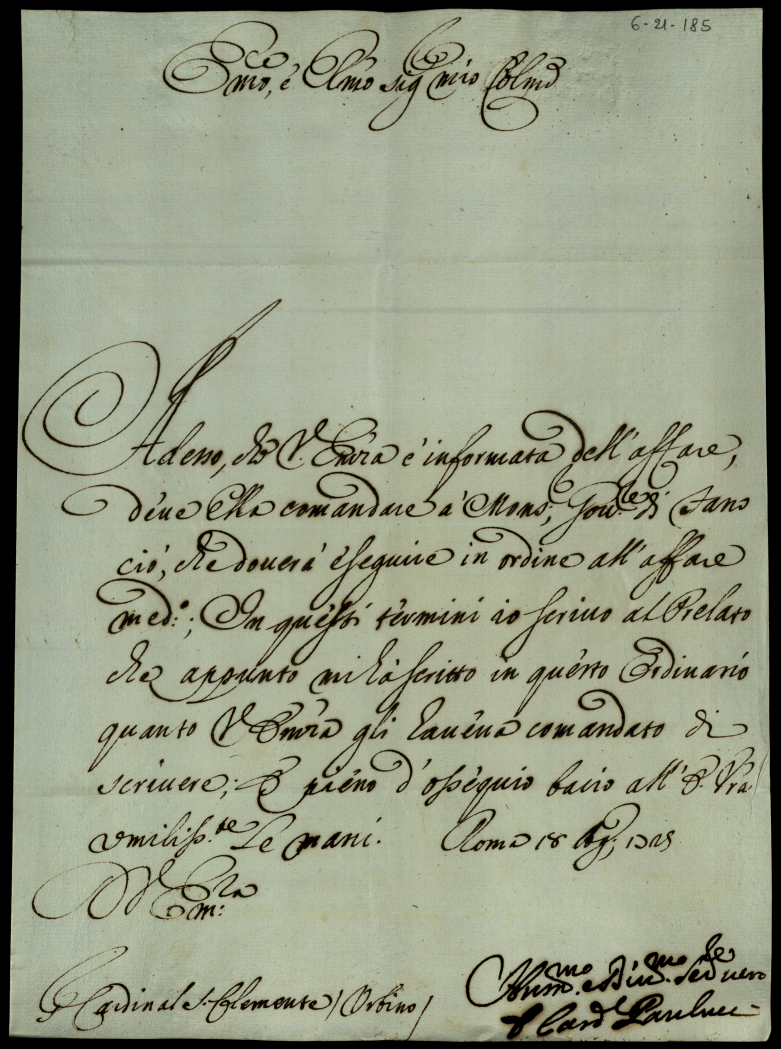 6-21-185
Em̃o, è R̃mo sig.r mio Col̃mo
Adesso, che V. Em̃za è informata dell'affare,
deue Ella comandare à Mons.r Gou.re di
ciò, che douerà eseguire in ordine all'affare
med.o; In questi termini io scriuo al Prelato
che appunto mi hà scritto in questo Ordinario
quanto V. Em̃za gli haueua comandato di
scriuere; E pieno d'ossequio bacio all'E. V̄ra
vmiliss.te le mani. Roma 18 Ag.
D. V. Em.za
Cardinale S. Clemente / Vrbino /
Hum.mo e Diu.mo se.re uero
Il Card.l Paulucci